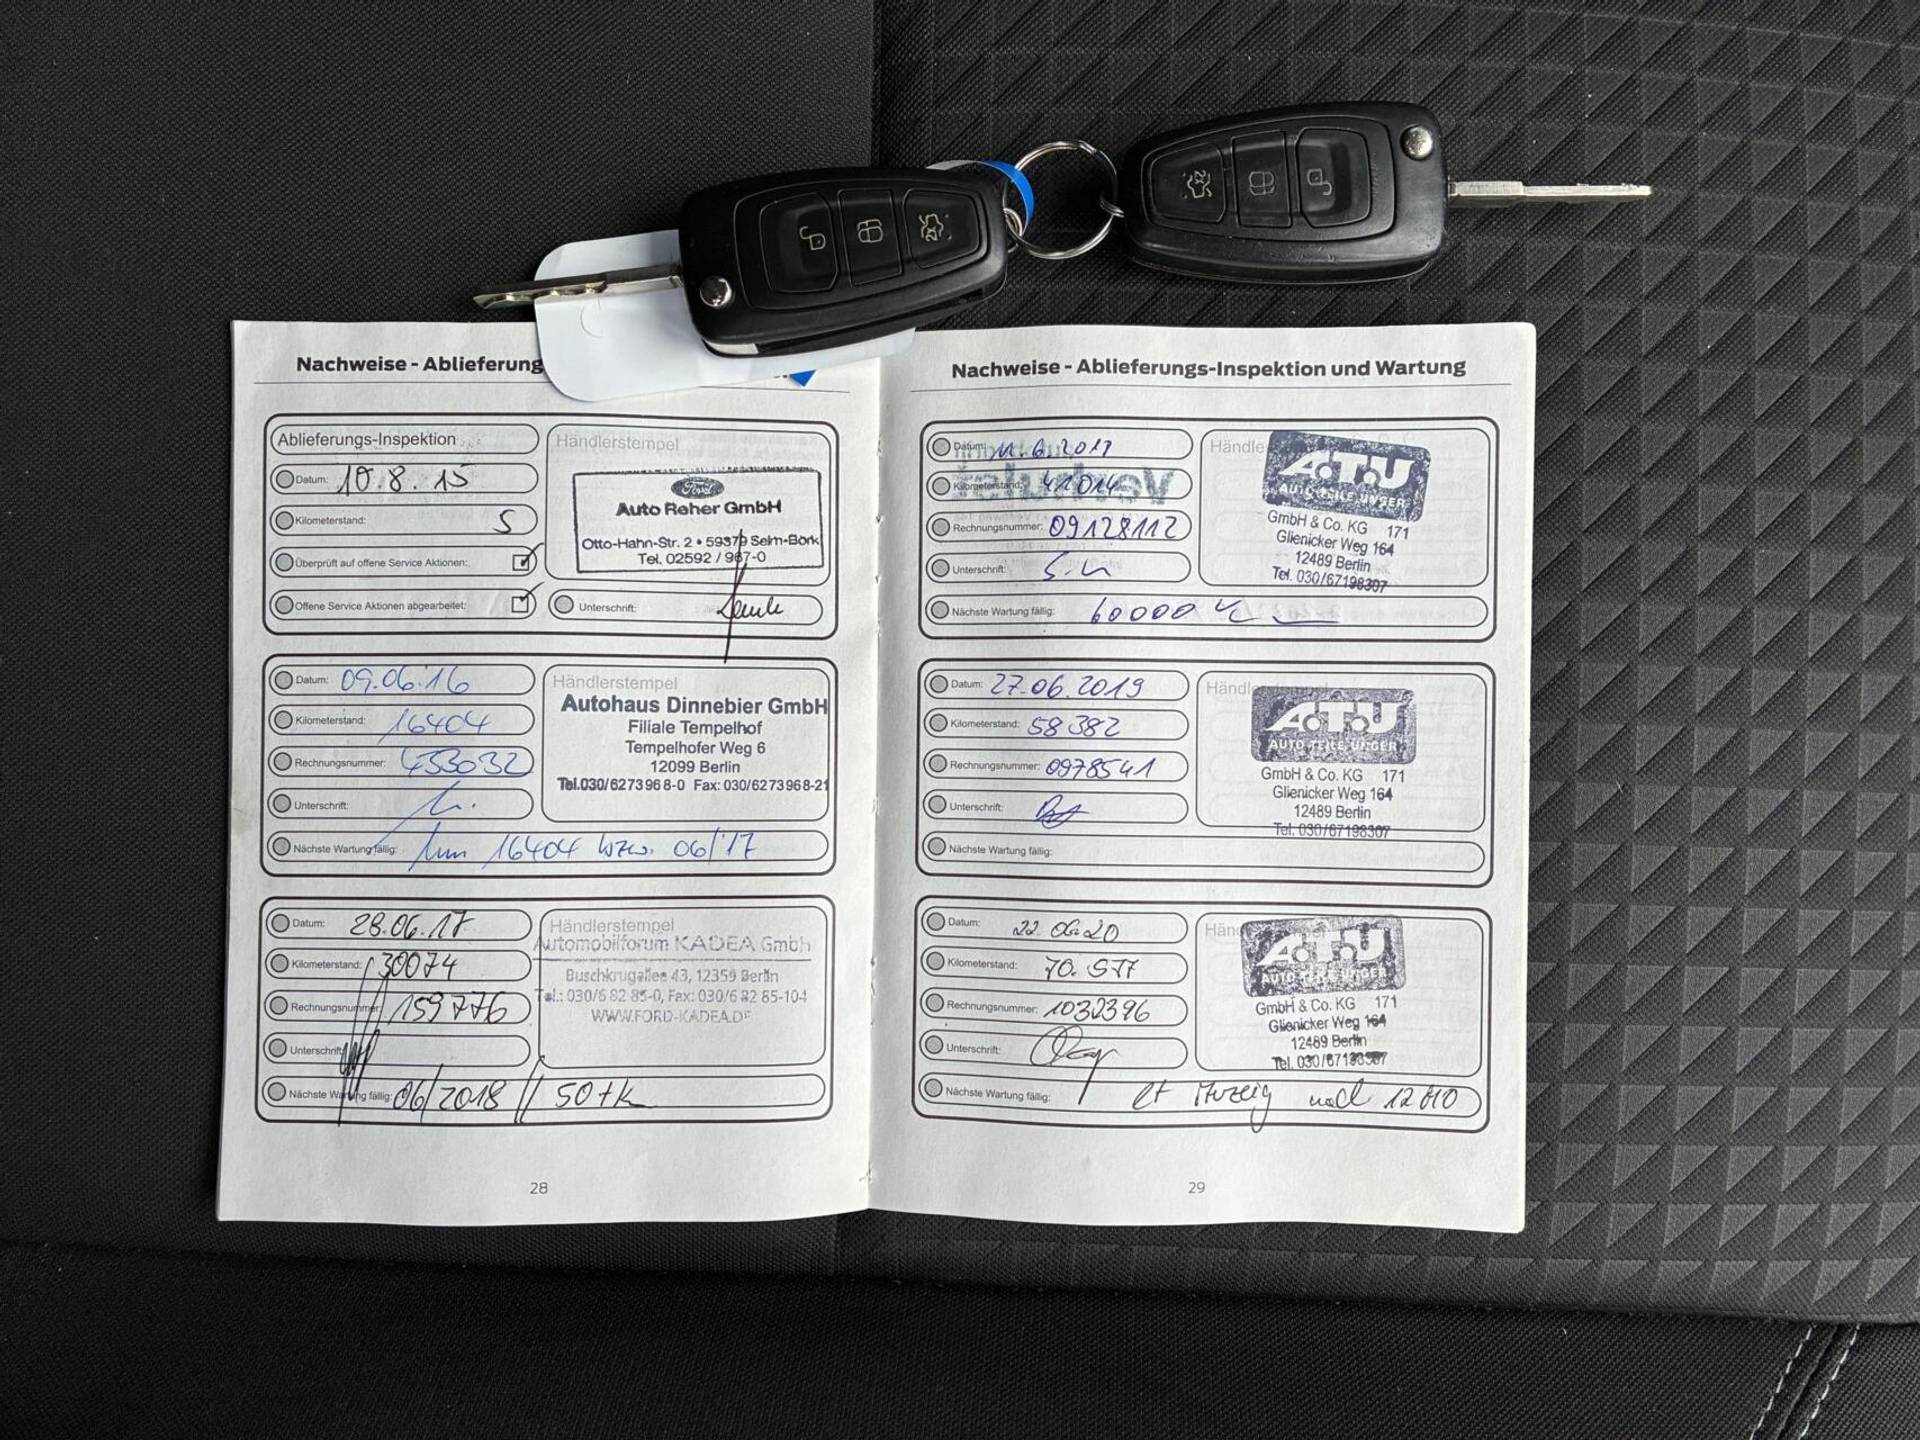 Nachweise - Ablieferung
Ablieferungs-Inspektion
Datum: 10.8.15
Kilometerstand: 5
Überprüft auf offene Service Aktionen:
Offene Service Aktionen abgearbeitet:
Händlerstempel
Ford
Auto Reher GmbH
Otto-Hahn-Str. 2 • 59379 Selm-Bork
Tel. 02592 / 967-0
Unterschrift:
Datum: 09.06.16
Kilometerstand: 16404
Rechnungsnummer: 433032
Unterschrift:
Händlerstempel
Autohaus Dinnebier GmbH
Filiale Tempelhof
Tempelhofer Weg 6
12099 Berlin
Tel.030/6273968-0 Fax: 030/6273968-21
Nächste Wartung fällig: 16404 bzw. 06/17
Datum: 28.06.17
Kilometerstand: 30074
Rechnungsnummer: 159776
Unterschrift:
Händlerstempel
Automobilforum KADEA Gmbh
Buschkrugallee 43, 12359 Berlin
Tel.: 030/6 82 85-0, Fax: 030/6 82 85-104
WWW.FORD-KADEA.DE
Nächste Wartung fällig: 06/2018 // 50 tk
28
Nachweise - Ablieferungs-Inspektion und Wartung
Datum: 11.6.201
Kilometerstand: 41014
Rechnungsnummer: 09128112
Unterschrift:
Händle
A.T.U
AUTO TEILE UNGER
GmbH & Co. KG 171
Glienicker Weg 164
12489 Berlin
Tel. 030/67198307
Nächste Wartung fällig: 60000
Datum: 27.06.2019
Kilometerstand: 58.382
Rechnungsnummer: 0978541
Unterschrift:
Händl
A.T.U
AUTO TEILE UNGER
GmbH & Co. KG 171
Glienicker Weg 164
12489 Berlin
Tel. 030/67198307
Nächste Wartung fällig:
Datum: 22.06.20
Kilometerstand: 70.577
Rechnungsnummer: 1032396
Unterschrift:
Händ
A.T.U
AUTO TEILE UNGER
GmbH & Co. KG 171
Glienicker Weg 164
12489 Berlin
Tel. 030/67198307
Nächste Wartung fällig: lt Anzeig
29